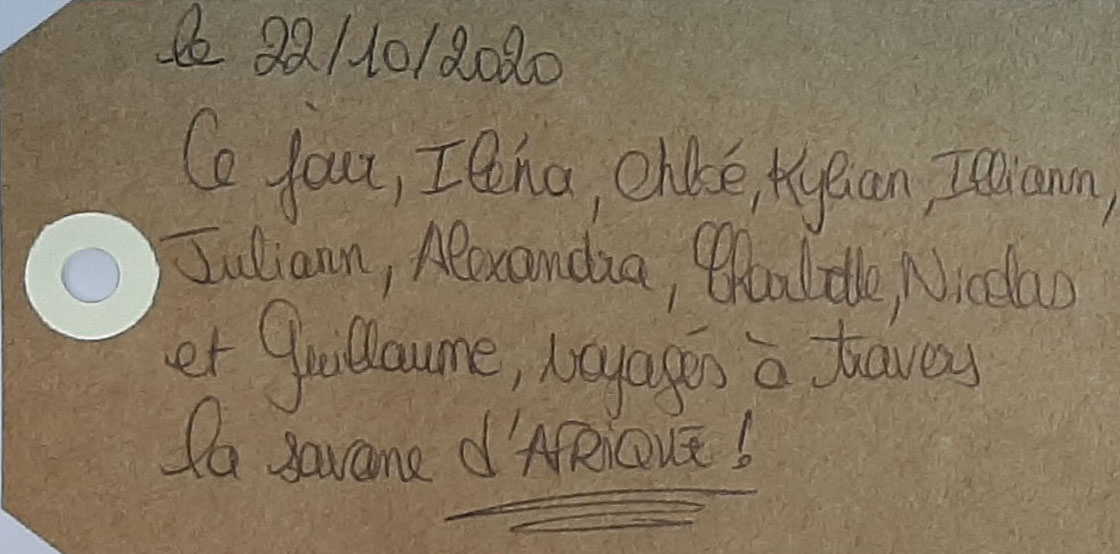 le 22/10/2020
Ce jour, Iléna, Chloé, Kylian, Illiann,
Juliann, Alexandra, Charlotte, Nicolas
et Guillaume, voyagés à travers
la savane d'AFRIQUE !